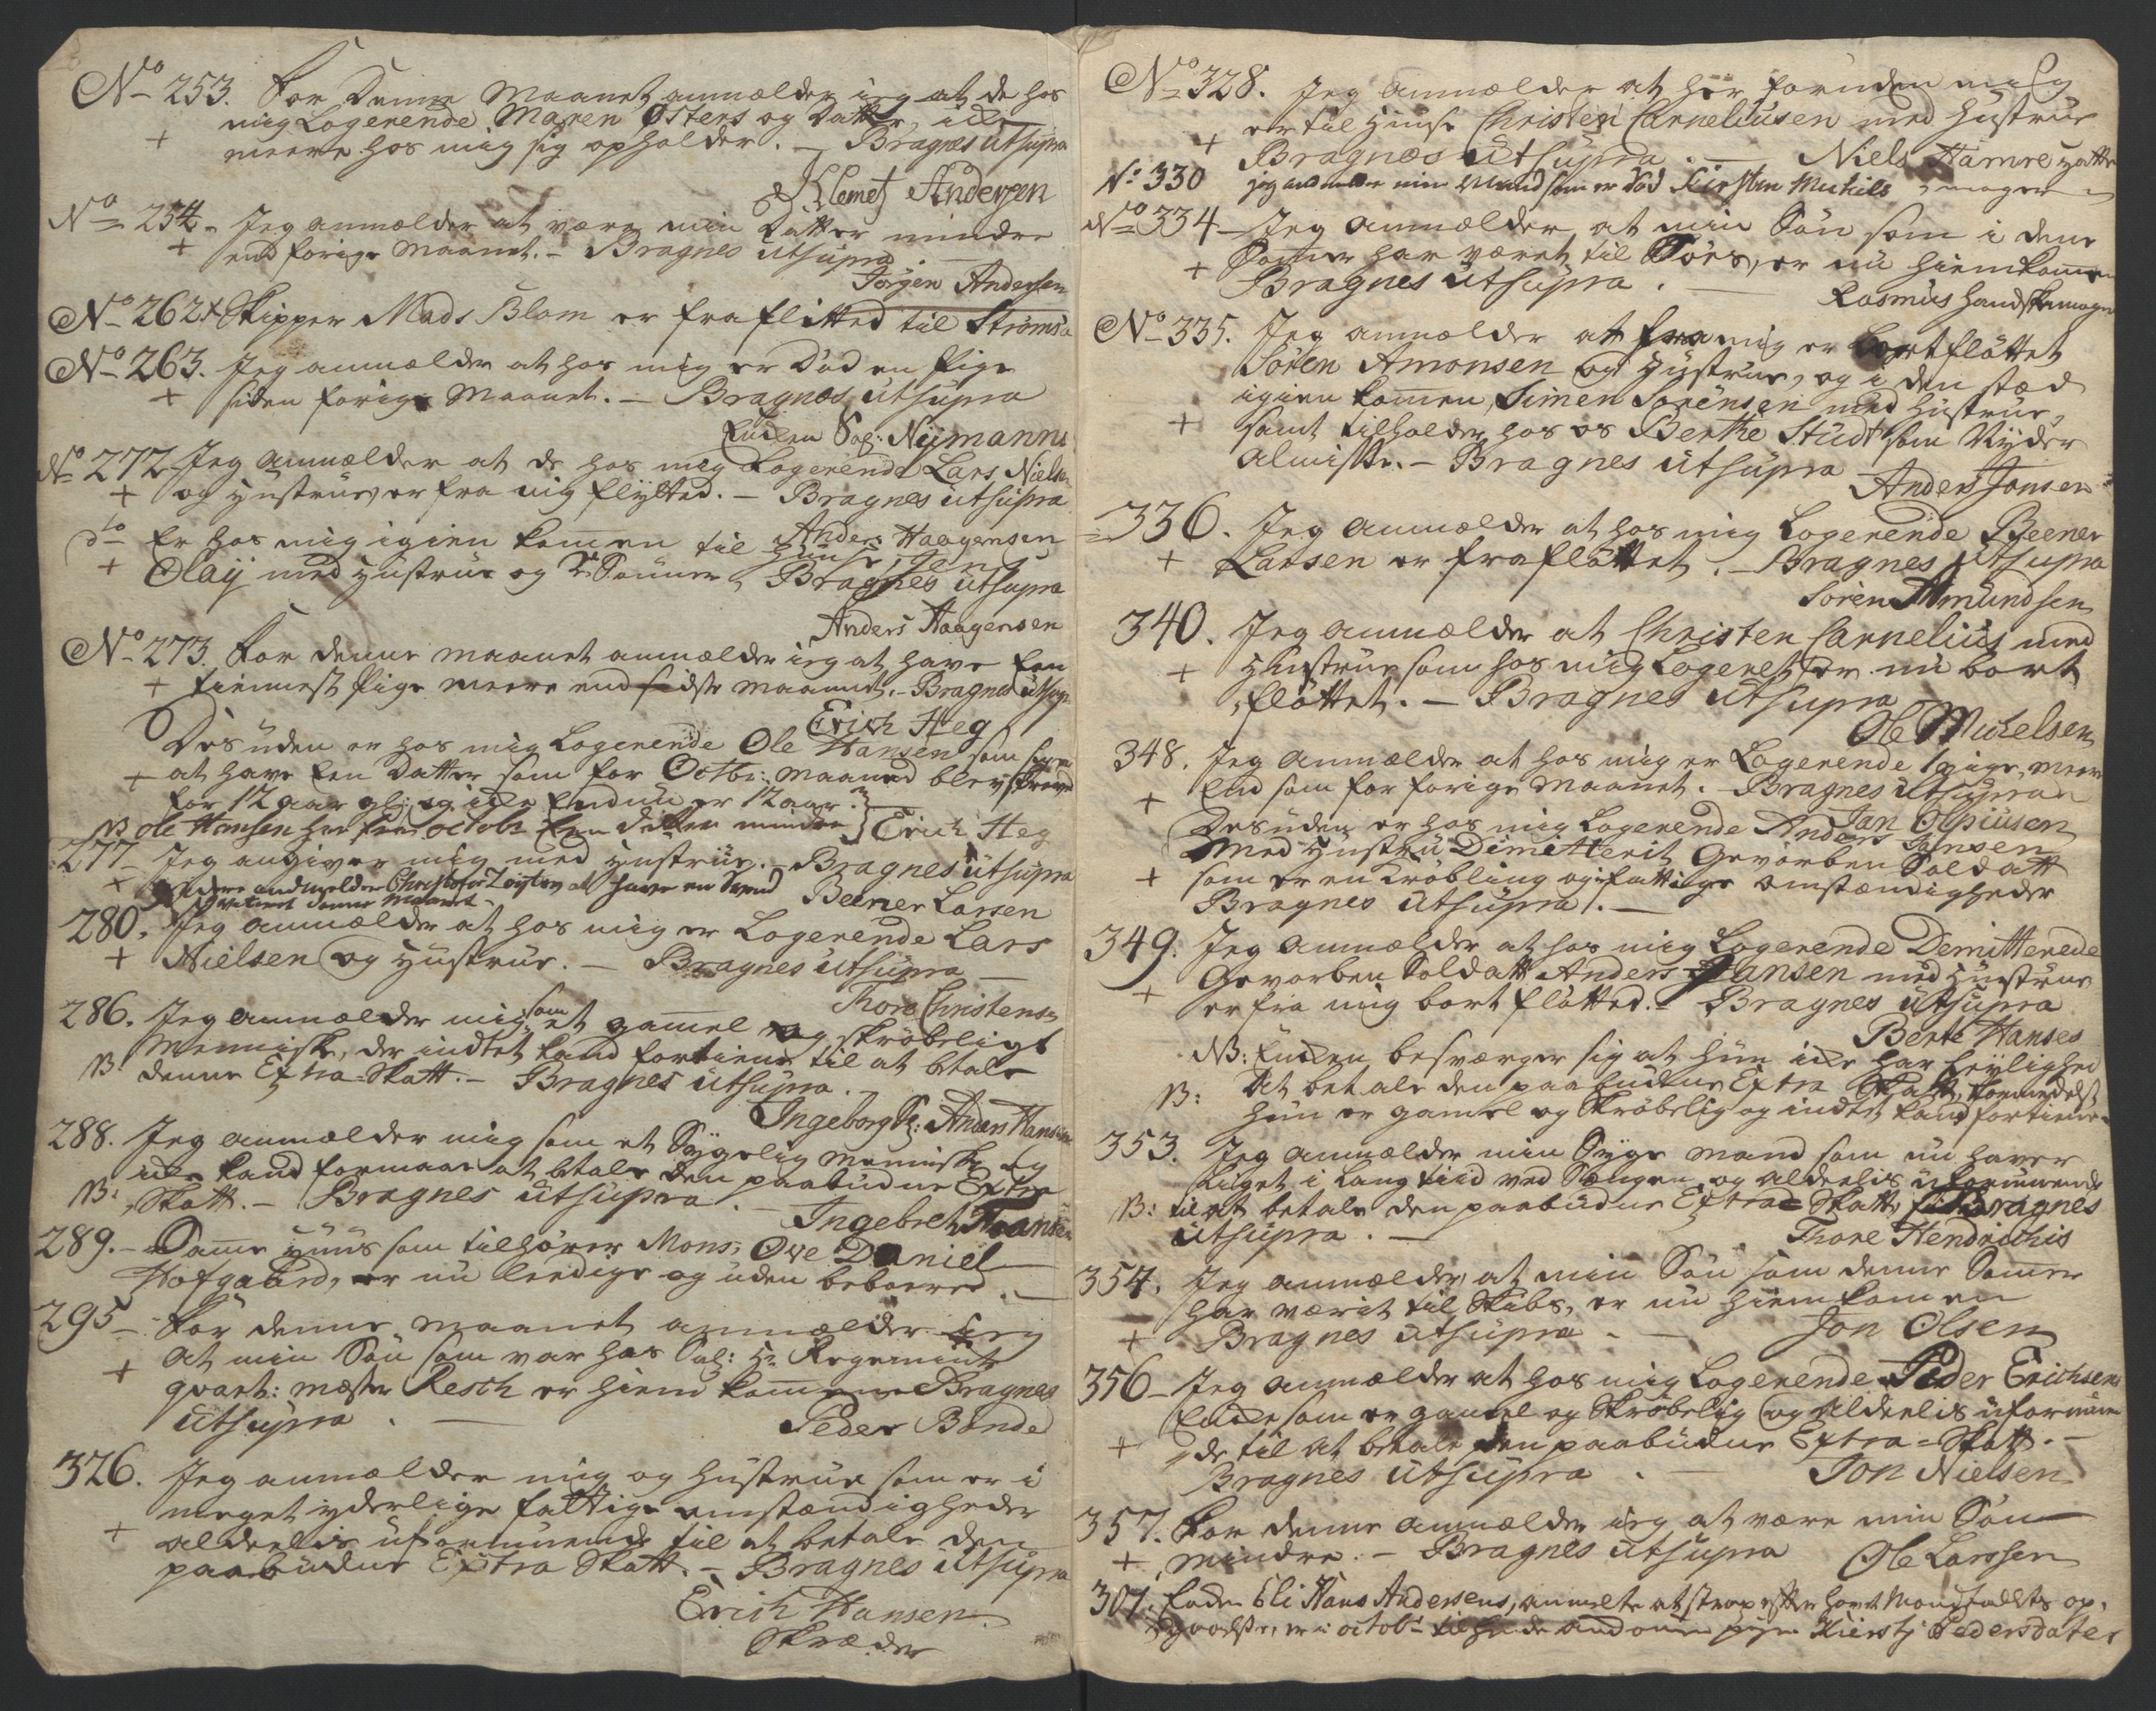 No 253. For Denne Maanet anmælder ieg at de hos
mig Logerende Maren Østers og Datter, icke
+ meere hos mig sig opholder. – Bragnes utsupra
Klemet Andersen
No 254. Jeg anmælder at være min Datter mindre
+ end forige Maanet. – Bragnes utsupra.
Jørgen Andersen
No 262 + Skipper Mads Blom er fraflitted til Strømsø
No 263. Jeg anmælder at hos mig er Død en Pige
+ siden forige Maanet. – Bragnæs utsupra
Encken Sal: Nijmanns
No 272 Jeg anmælder at de hos mig Logerende Lars Nielsen
+ og Hustrue, er fra mig flytted. – Bragnes utsupra
Anders Haagensen
dto Er hos mig igien komen til Huuse, Jens
+ Olaij med Hustrue og 2 Sønner, Bragnes utsupra
Anders Haagensen
No 273. For denne maanet anmælder ieg at have Een
+ tienneste Pige meere end sidste maanet. – Bragnes utsupra
Erich Heg
Des uden er hos mig Logerende Ole Hansen som
+ at have Een Datter som for Octbr: maaned blev skreved
for 12 aar gl: og icke Endnu er 12 aar.
NB Ole Hansen har for octobr Een datter mindre } Erich Heg
277 – Jeg angiver mig med Hustrue. – Bragnes utsupra
+ andmelder Christofer at have en Svend
denne Maanet – Beener Larsen
280. Jeg anmælder at hos mig er Logerende Lars
+ Nielsen og Hustrue. – Bragnes utsupra –
Thore Christensen
286. Jeg anmælder mig som et gamel og skrøbeligt
Menniske, der indtet kand fortiene til at btale
NB: denne Extra-Skatt. – Bragnes utsupra. –
Ingeborg Sl: Anders Hansen
288. Jeg anmælder mig som et Sygelig menniske og
icke kand formaae at btale den paabudne Extra
NB: Skatt. – Bragnes utsupra. –
Ingebret Haansen
289. – Same Huus som tilhører Mons: Ove Daniel
Hofgaard, er nu leedige og uden beboere. –
295 – For denne maanet anmælder ieg
+ at min Søn som var hos Sal: Hr Regements
qvart: mæster Resch er hiem kommen Bragnes
utsupra. – Peder Bonde
326. Jeg anmælder mig og Hustrue som er i
meget yderlige fattige omstændigheder
+ alderlis uformuende til at betale den
paabudne Extra Skatt. – Bragnes utsupra
Erich Hansen
Skræder
No 328. Jeg anmælder at her foruden mig
+ er til Huuse Christen Carneliusen med Hustrue
Bragnæs utsupra. – Niels Hamre Hatte
No 330 jeg anmelder min Mand som er død Kirsten Michels mager
No 334 – Jeg anmælder at min Søn som i dene
+ Somer har været til Søes, er nu hiemkomen
Bragnes utsupra. – Rasmus Handskemager
No 335. Jeg anmælder at fra mig er bortfløttet
Søren Amonsen og Hustrue, og i den stæd
igien komen Simen Sørensen med Hustrue,
+ samt tilholder hos os Berthe Studt som Nyder
almisse. – Bragnes utsupra
Anders Jonsen
336. Jeg anmælder at hos mig Logerende Beener
+ Larsen er fraflöttet. – Bragnes utsupra
Sören Amundsen
340. Jeg anmælder at Christen Carnelius med
+ Hustrue som hos mig Logeret er nu bort
flöttet. – Bragnes utsupra
Ole Michelsen
348. Jeg anmælder at hos mig er Logerende 1 pige, meere
+ End som for forige maanet. – Bragnes utsupra
Jan Olpiusen
Des uden er hos mig Logerende Anders Jansen
Med Hustru Dimitterit Gevorben Soldatt
+ som er en Krøbling og i fattige omstændigheder
Bragnes utsupra. –
349. Jeg anmælder at hos mig Logerende Demitterede
Gevorben Soldatt Anders Jansen med Hustrue
+ er fra mig bort flötted. – Bragnes utsupra
Berte Hanses
NB: Encken besværger sig at hun icke har Leylighed
NB: at betale den paabudne Extra Skatt, formedelst
hun er gamel og skrøbelig og indtet kand fortiene.
353. Jeg anmælder min Syge mand som nu haver
Liget i Lang tiid ved Sengen, og alderlis uformuende
NB: til at betale den paabudne Extra Skatt, Bragnes
utsupra. – Thore Hendrichis
354. Jeg anmælder at min Søn som denne Somer
har værit til Skibs, er nu hiemkomen
+ Bragnes utsupra. – Jon Olsen
356 – Jeg anmælder at hos mig Logerende Peder Erichsens
Encke som er gamel og Skrøbelig og alderlis uformuen
+ de til at betale den paabudne Extra-Skatt. –
Bragnes utsupra. – Jon Nielsen
357. For denne anmælder ieg at være min Søn
+ mindre. – Bragnes utsupra Ole Larssen
307. Encken Eli Hans Andersens, anmelte at strax efter Mandtallets op-
er i octobr Kiersti Pedersdater